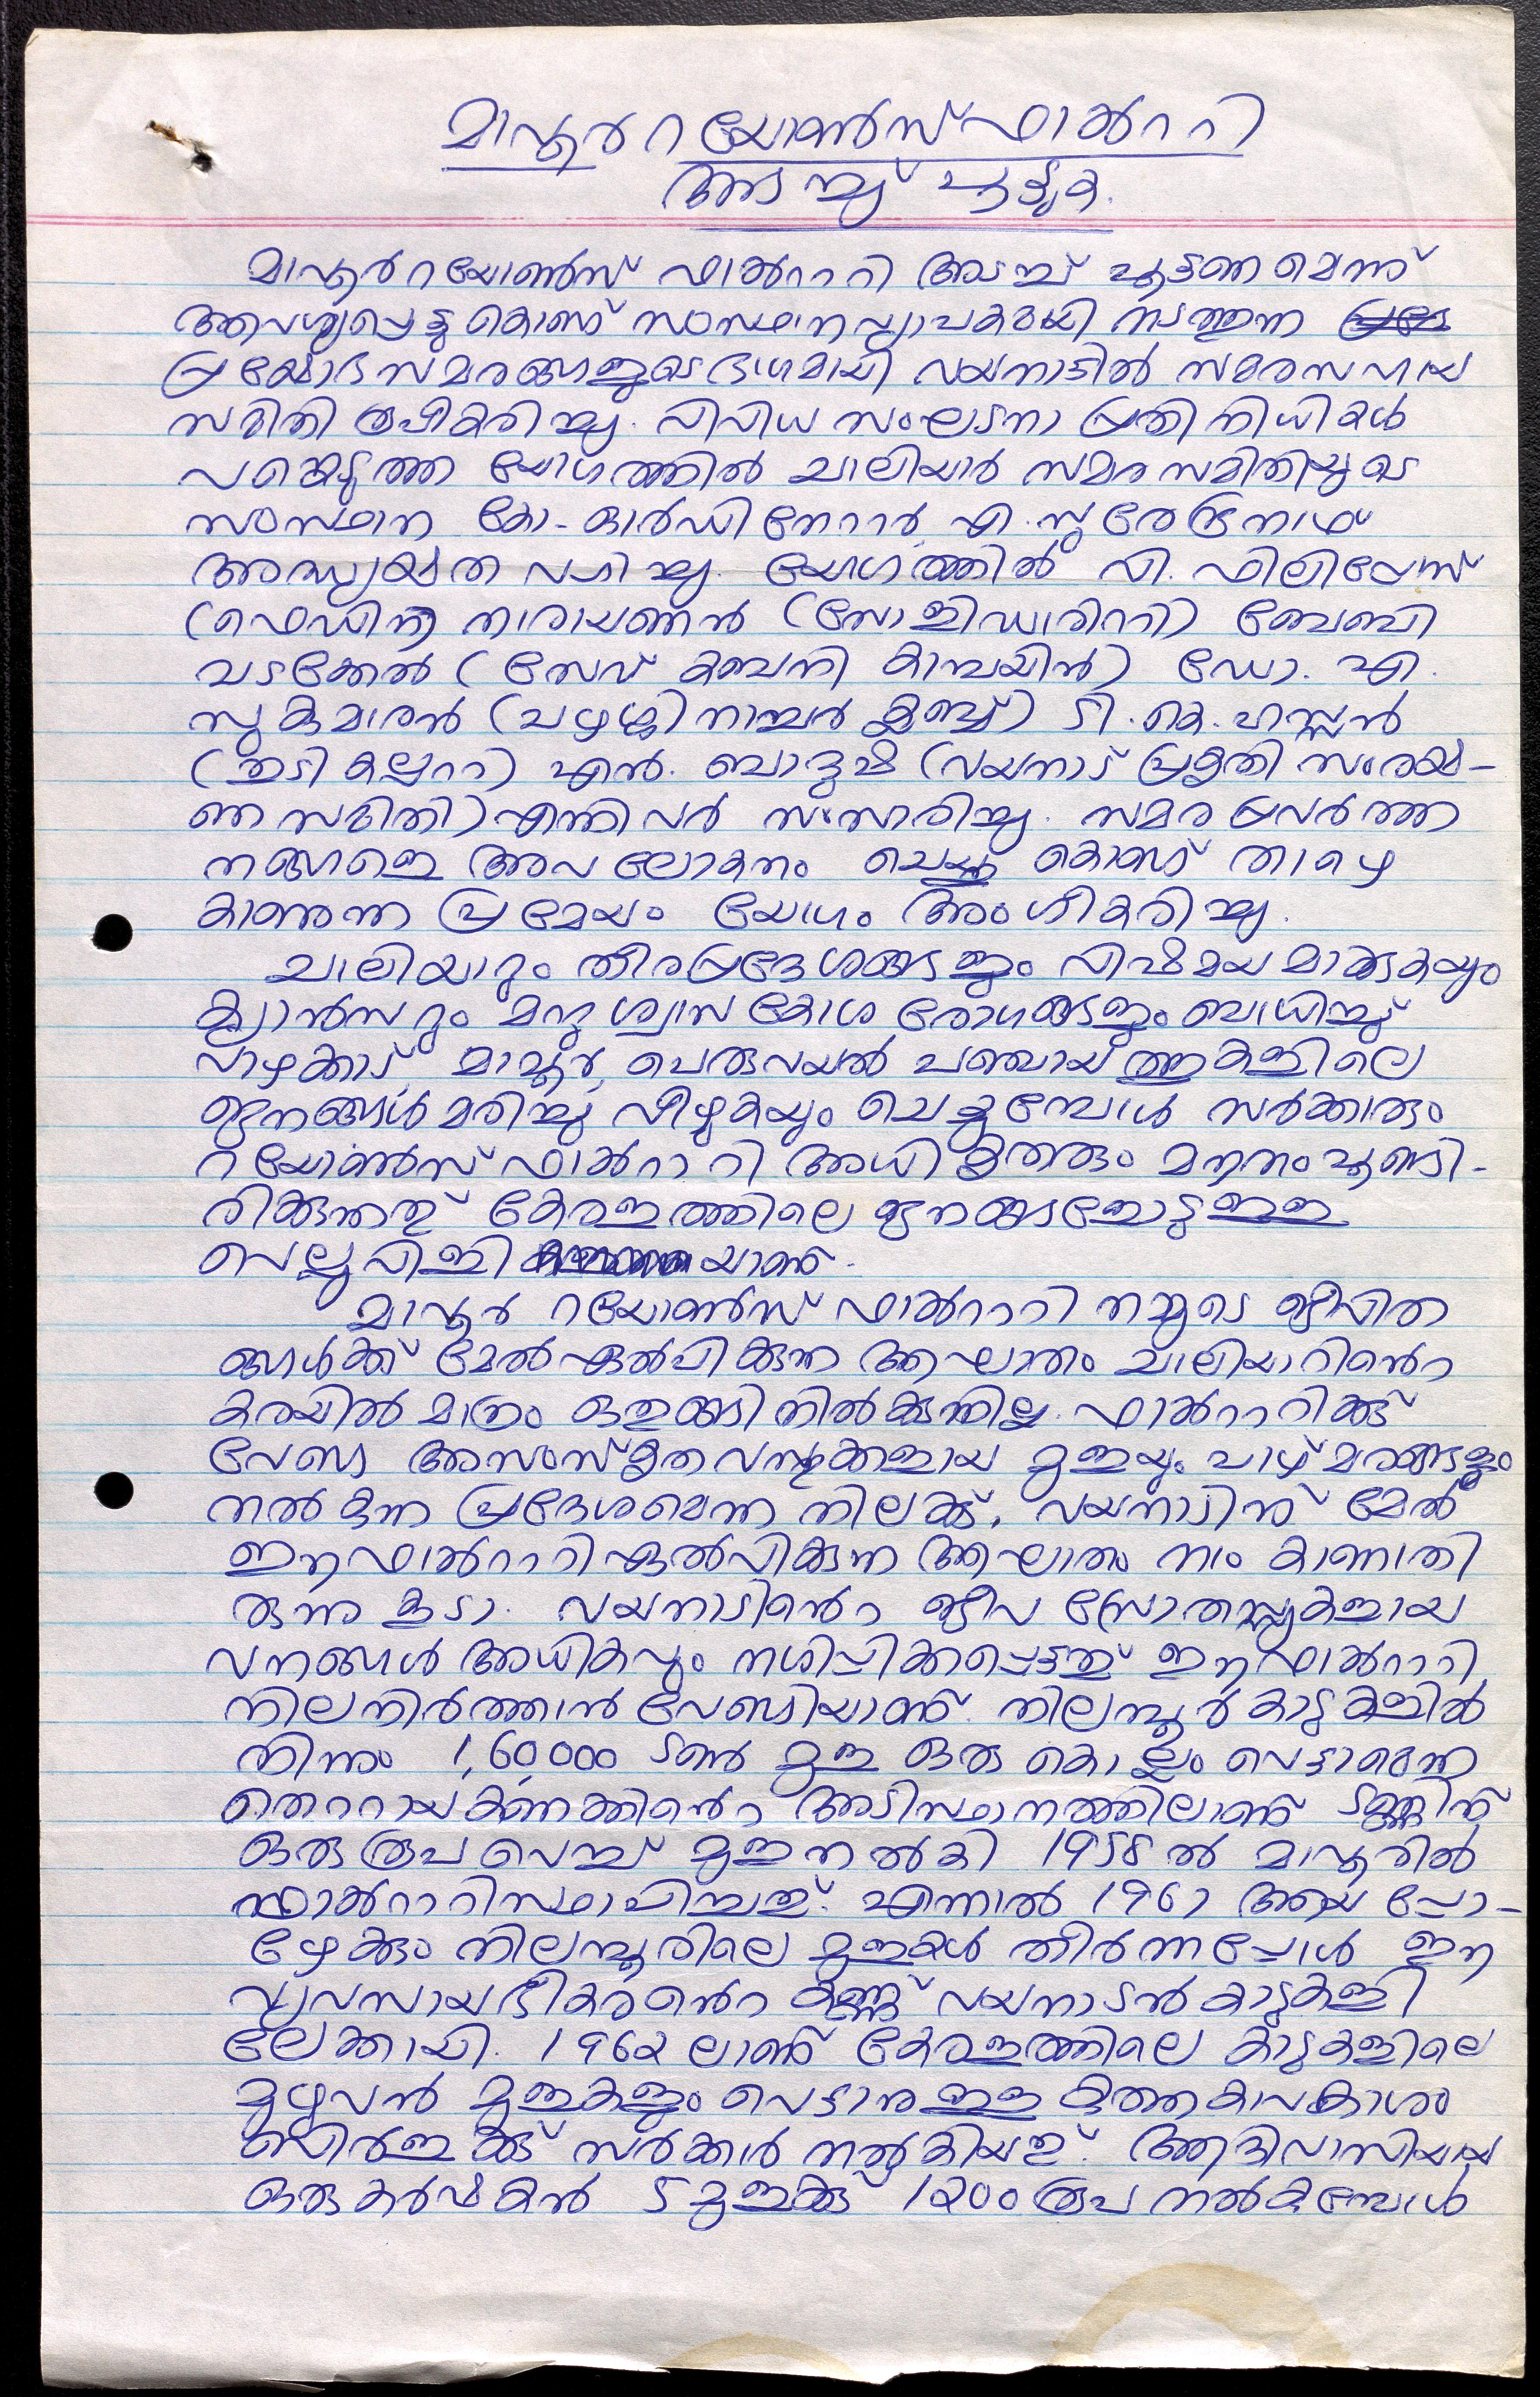 മാവൂർ റയോൺസ് ഫാൿററി
അടച്ചു പൂട്ടുക.
മാവൂർ റയോൺസ് ഫാൿറ്ററി അടച്ച് പൂട്ടണമെന്ന്
ആവശ്യപ്പെട്ടുകൊണ്ട് സംസ്ഥാനവ്യാപകമായി നടത്തുന്ന
പ്രക്ഷോഭസമരങ്ങളുടെ ഭാഗമായി വയനാട്ടിൽ സമരസഹായ
സമിതി രൂപീകരിച്ചു. വിവിധ സംഘടനാ പ്രതിനിധികൾ
പങ്കെടുത്ത യോഗത്തിൽ ചാലിയാർ സമര സമിതിയുടെ
സംസ്ഥാന കോ-ഓർഡിനേററർ എ. സുരേന്ദ്രനാഥ്
അദ്ധ്യക്ഷത വഹിച്ചു. യോഗത്തിൽ വി. ഫിലിപ്പോസ്
(ഫെഡിന) നാരായണൻ (സോളിഡാരിററി) ബേബി
വടക്കേൽ (സേവ് കബനി കാമ്പയിൻ) ഡോ. എ.
സുകുമാരൻ (പഴശ്ശി നാച്ചർ ക്ലബ്ബ്) ടി. കെ. ഹസ്സൻ
(തുടി കല്പററ) എൻ. ബാദുഷ (വയനാട് പ്രകൃതി സംരക്ഷ-
ണ സമിതി) എന്നിവർ സംസാരിച്ചു. സമര പ്രവർത്ത
നങ്ങളെ അവലോകനം ചെയ്തു കൊണ്ട് താഴെ
കാണുന്ന പ്രമേയം യോഗം അംഗീകരിച്ചു.
ചാലിയാറും തീരപ്രദേശങ്ങളും വിഷമയമാകുകയും
ക്യാൻസറും മററു ശ്വാസകോശ രോഗങ്ങളും ബാധിച്ച്
വാഴക്കാട്, മാവൂർ, പെരുവയൽ പഞ്ചായത്തുകളിലെ
ജനങ്ങൾ മരിച്ചു വീഴുകയും ചെയ്യുമ്പോൾ സർക്കാരും
റയോൺസ് ഫാൿറ്ററി അധികൃതരും മൗനം പൂണ്ടി-
രിക്കുന്നത് കേരളത്തിലെ ജനങ്ങളോടുള്ള
വെല്ലുവിളിയാണ്.
മാവൂർ റയോൺസ് ഫാൿറ്ററി നമ്മുടെ ജീവിത
ങ്ങൾക്ക് മേൽ ഏൽപിക്കുന്ന ആഘാതം ചാലിയാറിൻെറ
കരയിൽ മാത്രം ഒതുങ്ങി നിൽക്കുന്നില്ല. ഫാൿറ്ററിക്ക്
വേണ്ട അസംസ്കൃത വസ്തുക്കളായ മുളയും പാഴ് മരങ്ങളും
നൽകുന്ന പ്രദേശമെന്ന നിലക്ക്, വയനാടിന് മേൽ
ഈ ഫാൿറ്ററി ഏൽപിക്കുന്ന ആഘാതം നാം കാണാതി
രുന്നു കൂടാ. വയനാടിൻെറ ജീവ സ്രോതസ്സുകളായ
വനങ്ങൾ അധികവും നശിപ്പിക്കപ്പെട്ടത് ഈ ഫാൿറ്ററി
നിലനിർത്താൻ വേണ്ടിയാണ്. നിലമ്പൂർ കാടുകളിൽ
നിന്നും 1,60,000 ടൺ മുള ഒരു കൊല്ലം വെട്ടാമെന്ന
തെററായ കണക്കിൻെറ അടിസ്ഥാനത്തിലാണ് ടണ്ണിന്
ഒരു രൂപ വെച്ച് മുള നൽകി 1958 ൽ മാവൂരിൽ
ഫാൿറ്ററി സ്ഥാപിച്ചത്. എന്നാൽ 1961 ആയ പ്പോ-
ഴേക്കും നിലമ്പൂരിലെ മുളകൾ തീർന്നപ്പോൾ ഈ
വ്യവസായ ഭീകരൻെറ കണ്ണ് വയനാടൻ കാടുകളി
ലേക്കായി. 1962 ലാണ് കേരളത്തിലെ കാടുകളിലെ
മുഴുവൻ മുളകളും വെട്ടാനുള്ള കുത്തകാവകാശം
ബിർളക്ക് സർക്കാർ നൽകിയത്. ആദിവാസിയായ
ഒരു കർഷകൻ 5 മുളക്ക് 1200 രൂപ നൽകുമ്പോൾ